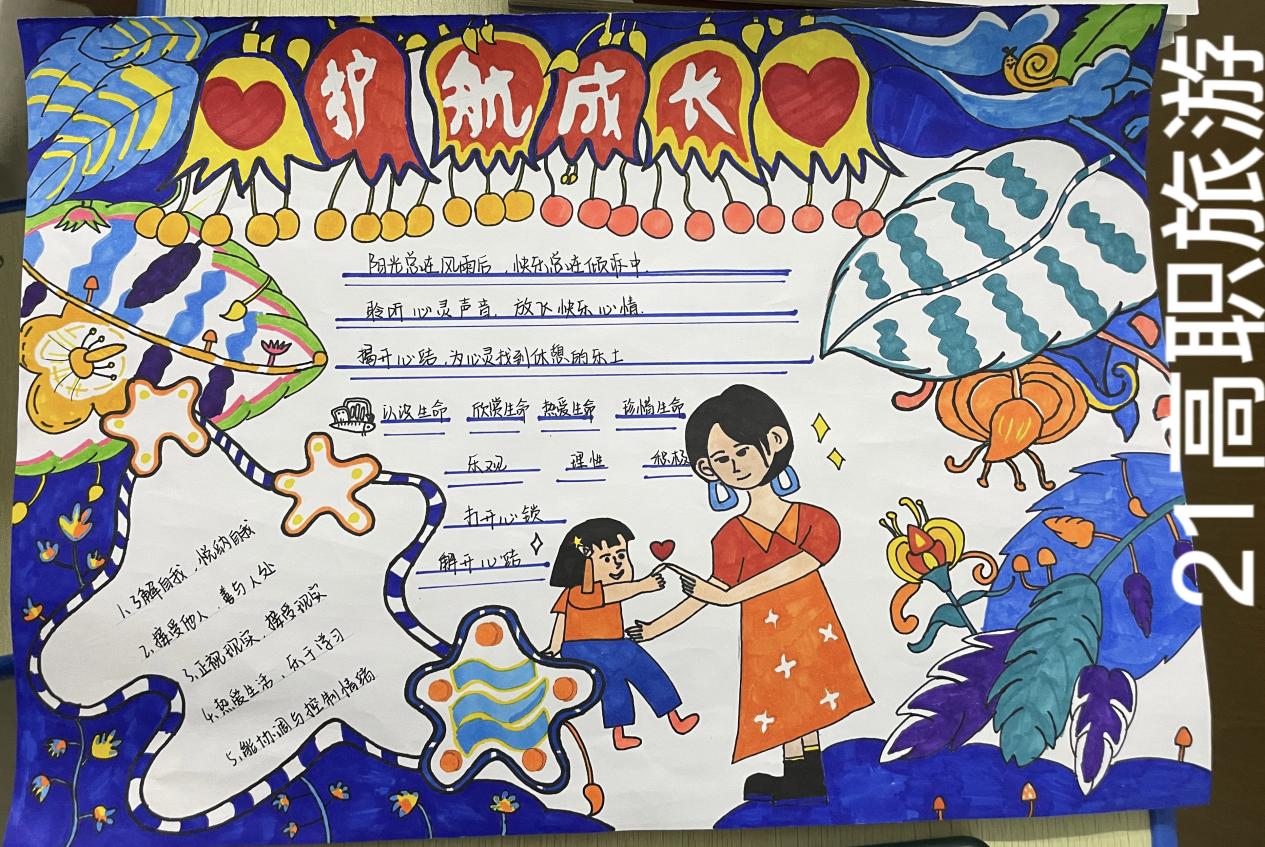 护航成长
阳光总在风雨后，快乐总在倾诉中.
聆听心灵声音，放飞快乐心情.
揭开心结，为心灵找到休憩的乐土
认识生命 欣赏生命 热爱生命 珍惜生命
乐观 理性 积极
打开心锁
解开心结
1.了解自我，悦纳自我
2.接受他人，善与人处
3.正视现实，接受现实
4.热爱生活，乐于学习
5.能协调与控制情绪
21高职旅游